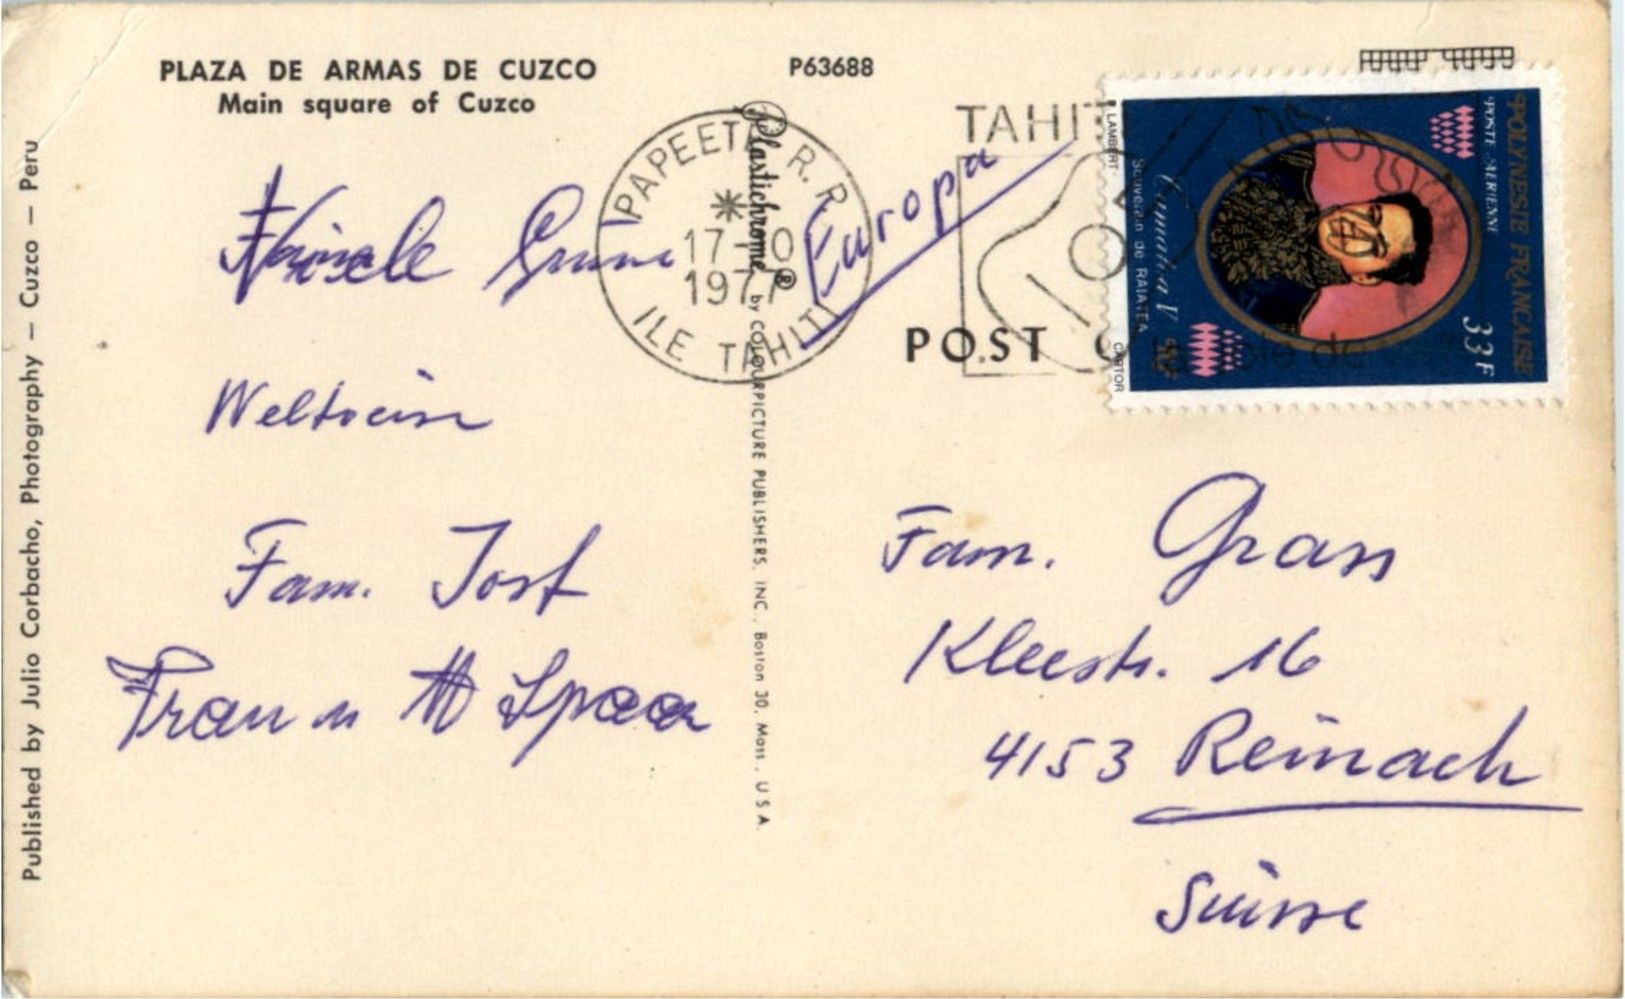 PLAZA DE ARMAS DE CUZCO
Main square of Cuzco
P63688
Published by Julio Corbacho, Photography — Cuzco — Peru
Plastichrome® by COLOURPICTURE PUBLISHERS, INC., Boston 30, Mass., U.S.A.
PAPEETE R.P.
17-10
1977
ILE TAHITI
TAHITI
Europa
POST
POLYNESIE FRANCAISE
POSTE AERIENNE
33F
Tamatoa V
Souverain de RAIATEA
LAMBERT
CARTOR
Fam. Jost
Fam. Grass
Kleestr. 16
4153 Reinach
Suisse